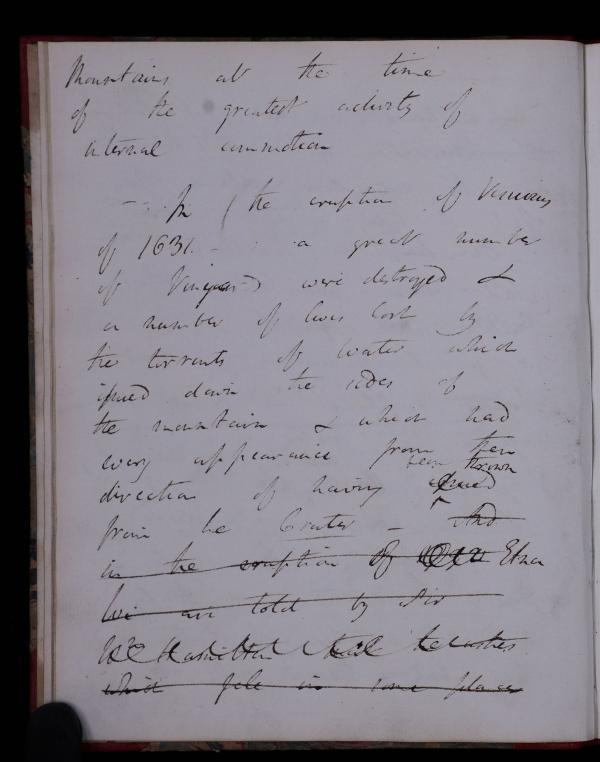 Mountains at the time
of the greatest activity of
internal commotion
- - In the eruption of Vesuvius
of 1631. - a great number
of Vineyards were destroyed &
a number of lives lost by
the torrents of water which
issued down the sides of
the mountain & which had
every appearance from their
been thrown
direction of having issued
from the Crater - And
in the eruption of Etna
We are told by Sir
Wm Hamilton that the ashes
which fell in some places